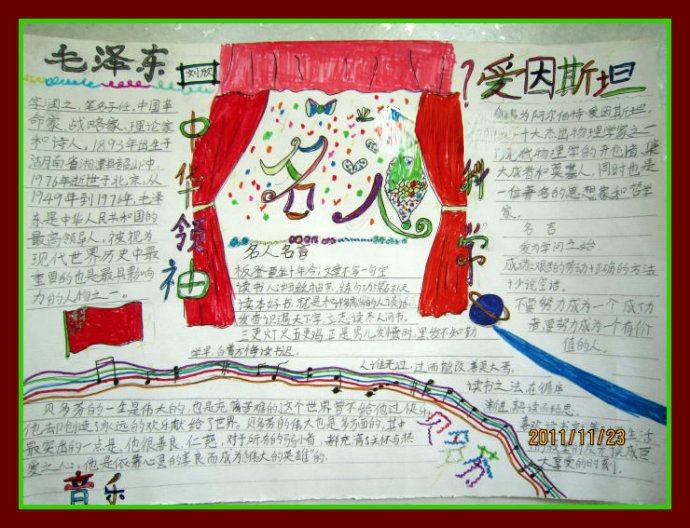 毛泽东
刘欣
中华领袖
字润之，笔名子任，中国革
命家、战略家、理论家
和诗人，1893年出生于
湖南省湘潭县韶山冲，
1976年逝世于北京，从
1949年到1976年，毛泽
东是中华人民共和国的
最高领导人，被视为
现代世界历史中最
重要的也是最具影响
力的人物之一。
名人
名人名言
板凳要坐十年冷，文章不写一句空
读书
读本好书，就是和
发奋识遍天下字，立志读尽人间书。
三更灯火五更鸡，正是男儿发愤时，黑发不知勤
学早，白首方悔读书迟。
?爱因斯坦
科学
为阿尔伯特·爱因斯坦，
十大杰出物理学家之一
现代物理学的开创者、集
大成者和奠基人，同时也是
一位著名的思想家和哲学
家。
名言
发为学问之始
成功=艰苦的劳动+正确的方法
+少说空话。
不要努力成为一个成功
者，要努力成为一个有价
值的人。
人谁无过，过而能改，善莫大焉。
读书之法，在循序
渐进，熟读而精思。
贝多芬的一生是伟大的，也是充满苦难的，这个世界曾不给他过快乐，
他却创造了永远的欢乐献给了世界。贝多芬的伟大也是多方面的，其中
最突出的一点是，他很善良、仁慈，对于所有的弱小者，都充满了关怀与热
爱之心，他是依靠心灵的善良而成为“伟大的英雄”的。
贝多芬
音乐
2011/11/23